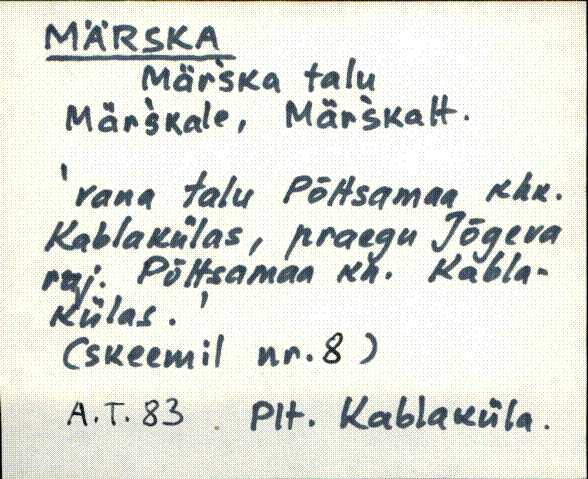 MÄRSKA
Mär`ska talu
Mär`skale, Mär`skalt.
'vana talu Põltsamaa khk.
Kablakülas, praegu Jõgeva
raj. Põltsamaa kn. Kabla-
külas.'
(skeemil nr. 8)
A.T. 83 Plt. Kablaküla.